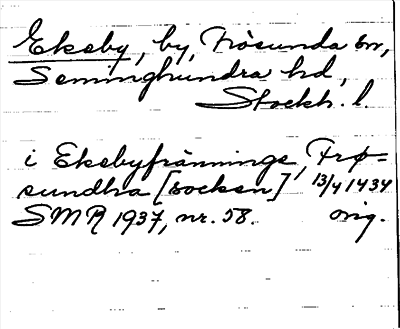 Eksby, by, Frösunda sn,
Seminghundra hd,
Stockh. l.
i Eksbyfrännings, Frø-
sundha [socken] 13/4 1434
SMR 1937, nr. 58. orig.